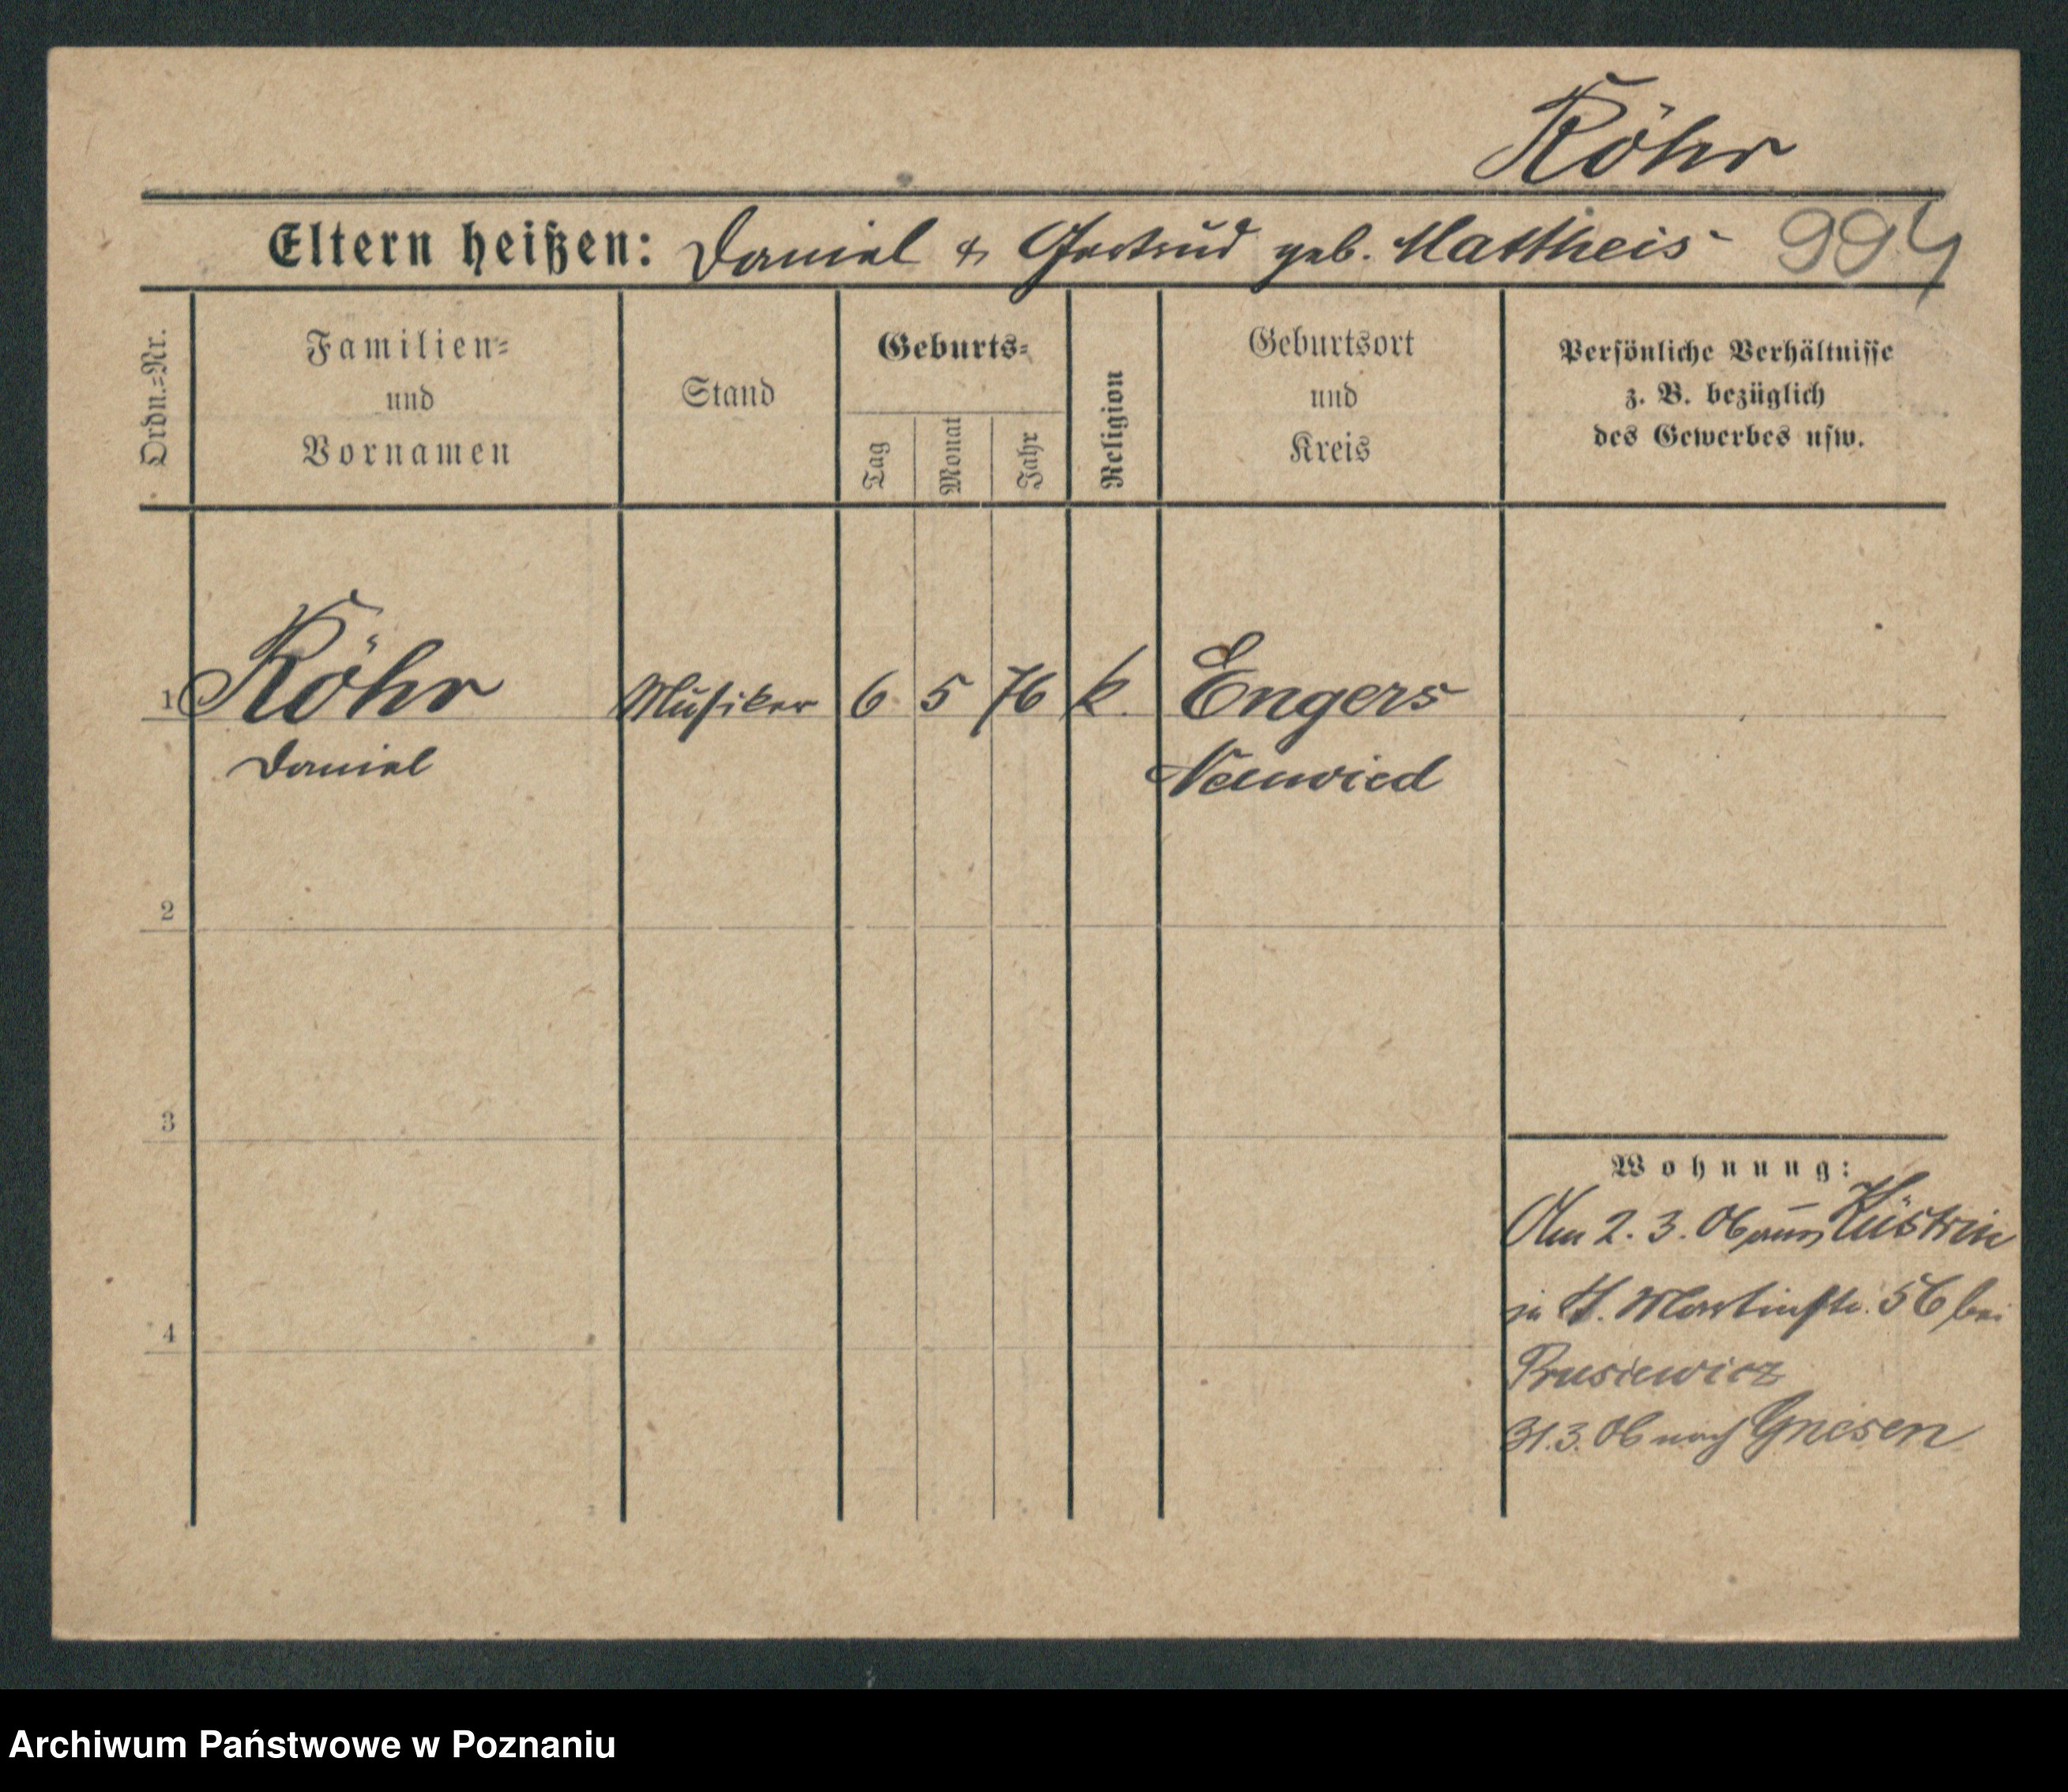 Röhr
Eltern heißen: Daniel & Gertrud geb. Mattheis 994
Ordn.=Nr.
Familien=
und
Vornamen
Stand
Geburts=
Tag
Monat
Jahr
Religion
Geburtsort
und
Kreis
Persönliche Verhältnisse
z. B. bezüglich
des Gewerbes usw.
1 Röhr Musiker 6 5 76 k. Engers
Daniel Neuwied
2
3
Wohnung:
Am 2. 3. 06 aus Küstrin
in St. Martinstr. 56 bei
4
Prusiewicz
31.3.06 nach Gnesen
Archiwum Państwowe w Poznaniu